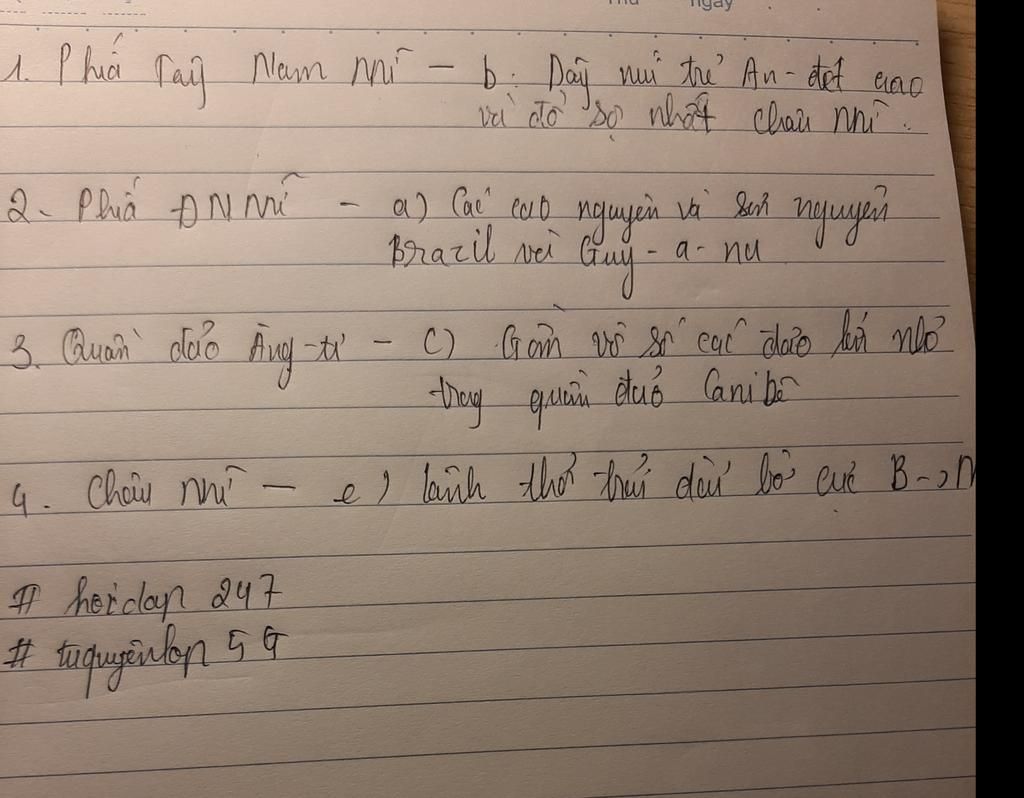 ngày
1. Phiá Tây Nam Mĩ – b. Dãy núi trẻ An-đét cao
và đồ sộ nhất châu Mĩ.
2. Phiá ĐN Mĩ – a) Các cao nguyên và sơn nguyên
Brazil và Guy-a-na
3. Quần đảo Ăng-ti – c) Gồm vô số các đảo lớn nhỏ
trong quần đảo Caribê
4. Châu Mĩ – e) lãnh thổ trải dài từ cực B->N
# hoidap 247
# tuquyenlop 5G